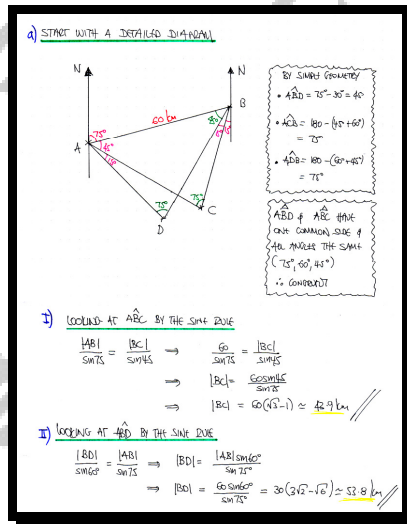 a) START WITH A DETAILED DIAGRAM
N
N
B
60 km
75°
45°
15°
A
75°
75°
C
D
BY SIMPLE GEOMETRY
• AB̂D = 75° - 30° = 45°
• AĈB = 180 - (45 + 60)
= 75°
• AD̂B = 180 - (60 + 45°)
= 75°
ABD & ABC HAVE
ONE COMMON SIDE &
ALL ANGLES THE SAME
(75°, 60°, 45°)
∴ CONGRUENT
I) LOOKING AT ABC BY THE SINE RULE
|AB|/sin75 = |BC|/sin45 ⇒ 60/sin75 = |BC|/sin45
⇒ |BC| = 60sin45/sin75
⇒ |BC| = 60(√3-1) ≈ 43.9 km
II) LOOKING AT ABD BY THE SINE RULE
|BD|/sin60° = |AB|/sin75 ⇒ |BD| = |AB|sin60°/sin75°
⇒ |BD| = 60sin60°/sin75° = 30(3√2-√6) ≈ 53.8 km